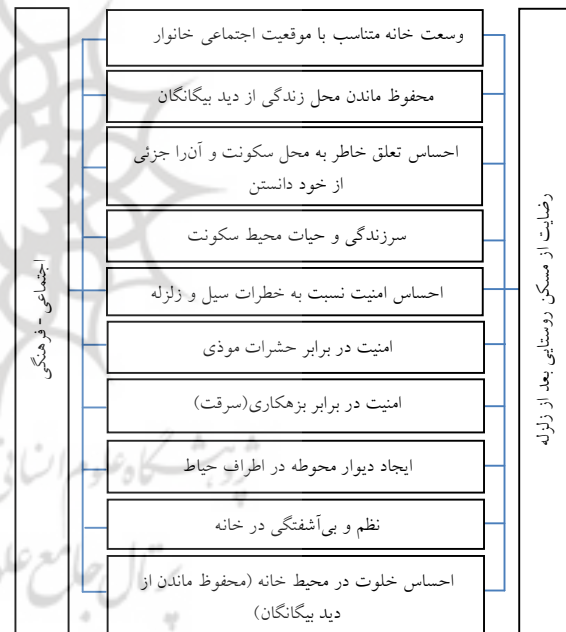 رضایت از مسکن روستایی بعد از زلزله
وسعت خانه متناسب با موقعیت اجتماعی خانوار
محفوظ ماندن محل زندگی از دید بیگانگان
احساس تعلق خاطر به محل سکونت و آن‌را جزئی
از خود دانستن
سرزندگی و حیات محیط سکونت
احساس امنیت نسبت به خطرات سیل و زلزله
امنیت در برابر حشرات موذی
امنیت در برابر بزهکاری(سرقت)
ایجاد دیوار محوطه در اطراف حیاط
نظم و بی‌آشفتگی در خانه
احساس خلوت در محیط خانه (محفوظ ماندن از
دید بیگانگان)
اجتماعی - فرهنگی
پژوهشگاه علوم انسانی
پرتال جامع علو